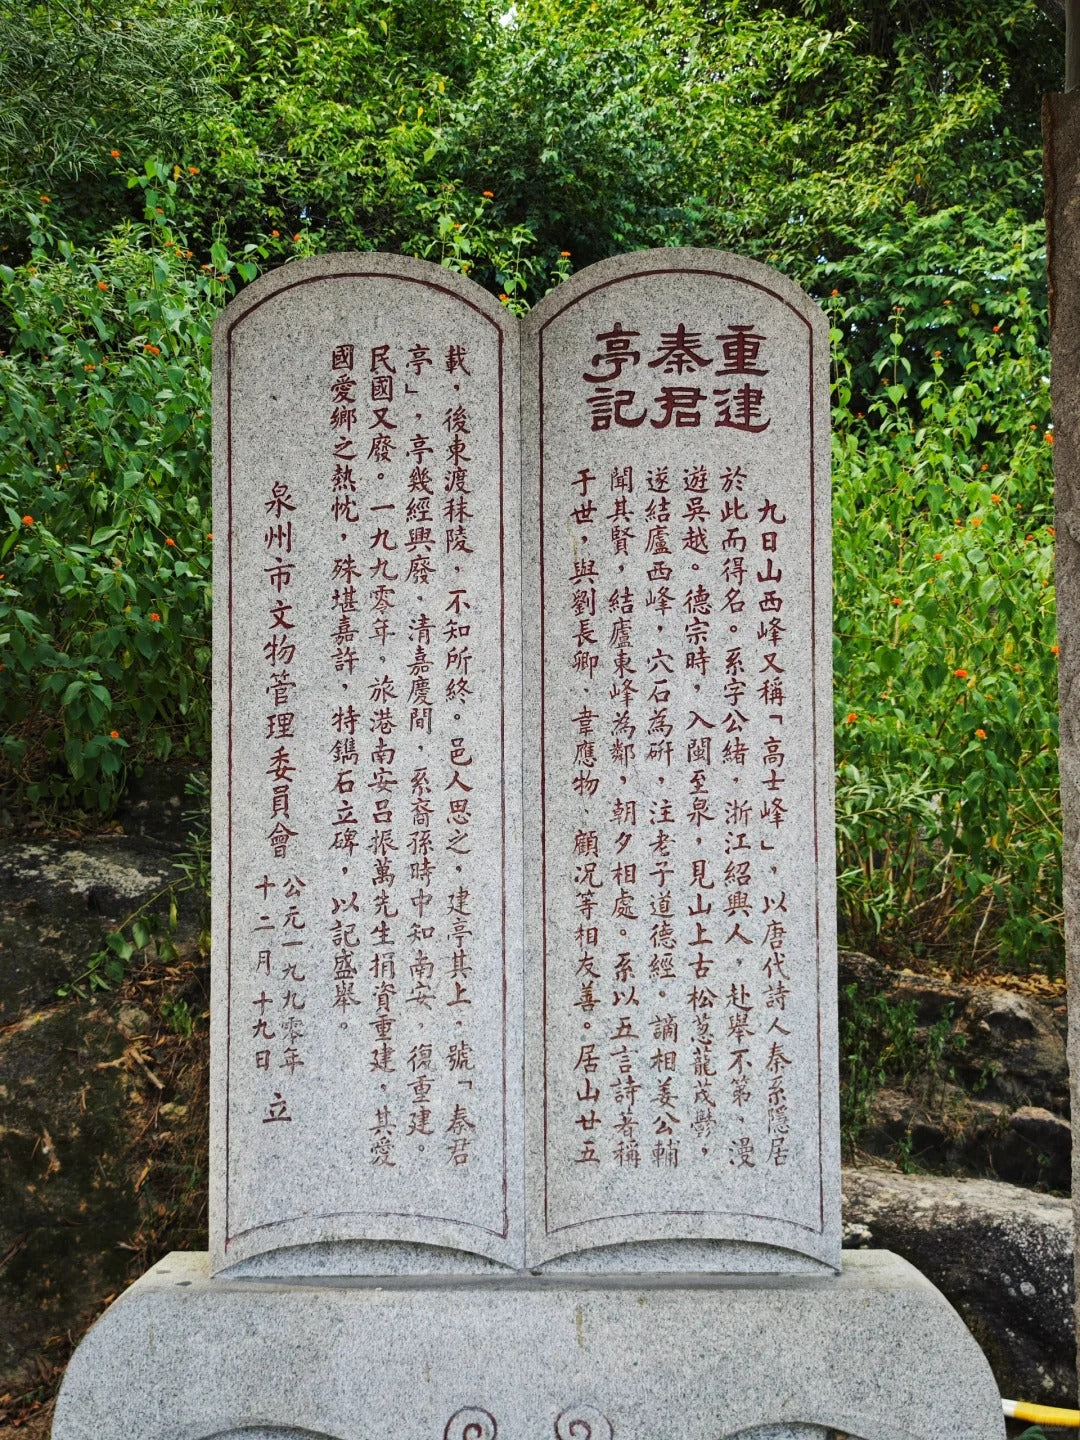 重建
秦君
亭記
九日山西峰又稱「高士峰」，以唐代詩人秦系隱居
於此而得名。系字公緒，浙江紹興人，赴舉不第，漫
遊吳越。德宗時，入閩至泉，見山上古松蔥蘢茂鬱，
遂結廬西峰，穴石為硏，注老子道德經。謫相姜公輔
聞其賢，結廬東峰為鄰，朝夕相處。系以五言詩著稱
于世，與劉長卿、韋應物、顧況等相友善。居山廿五
載，後東渡秣陵，不知所終。邑人思之，建亭其上，號「秦君
亭」，亭幾經興廢，清嘉慶間，系裔孫時中知南安，復重建。
民國又廢。一九九零年，旅港南安呂振萬先生捐資重建，其愛
國愛鄉之熱忱，殊堪嘉許，特鐫石立碑，以記盛舉。
泉州市文物管理委員會
公元一九九零年
十二月十九日 立